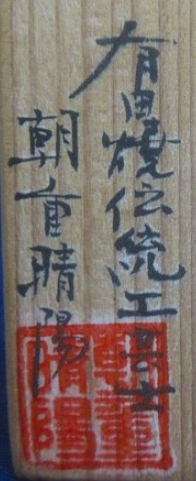 有田燒伝統工芸士
朝重晴陽
朝重
晴陽